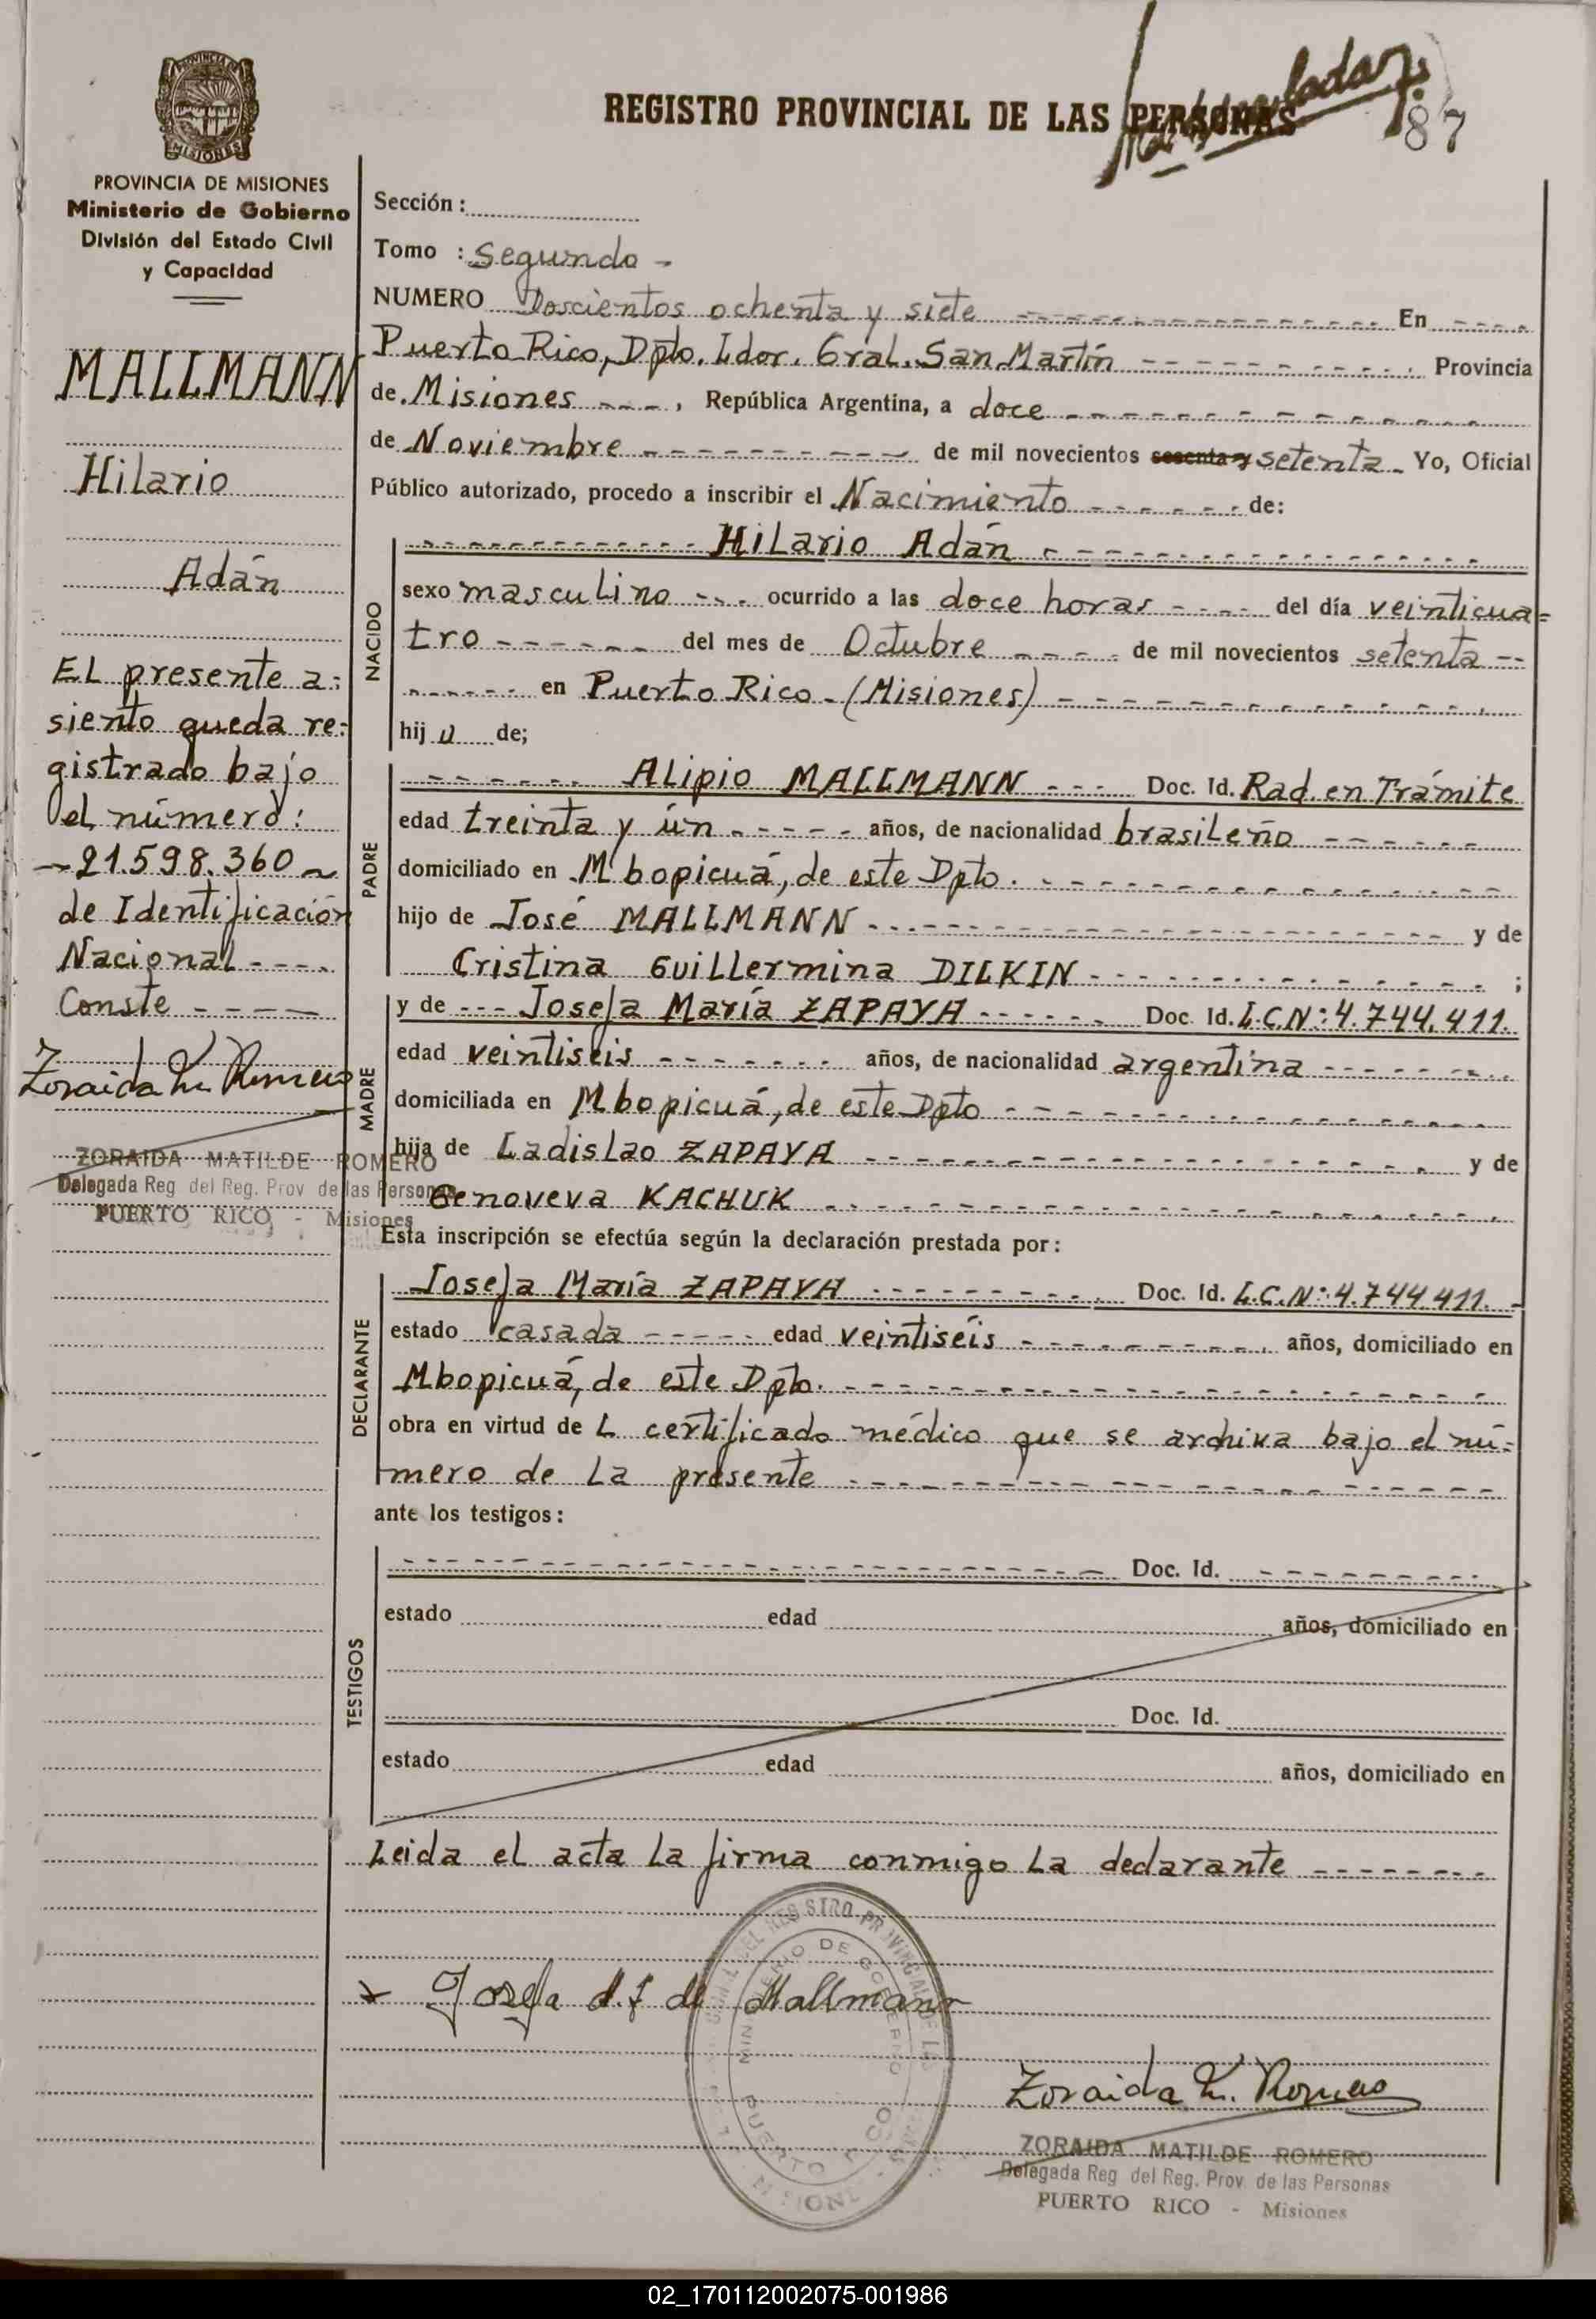 REGISTRO PROVINCIAL DE LAS PERSONAS
87
PROVINCIA DE MISIONES
Ministerio de Gobierno
División del Estado Civil
y Capacidad
MALLMANN
Hilario
Adán
EL presente a=
siento queda re=
gistrado bajo
el número:
-21.598.360-
de Identificación
Nacional ----
Conste ----
Zoraida M. Romero
ZORAIDA MATILDE ROMERO
Delegada Reg del Reg. Prov de las Personas
PUERTO RICO - Misiones
Sección:
Tomo : Segundo -
NUMERO Doscientos ochenta y siete ---- En ----
Puerto Rico, Dpto. Ldor. Gral. San Martín ---- Provincia
de Misiones ----, República Argentina, a doce ----
de Noviembre ---- de mil novecientos sesenta y setenta - Yo, Oficial
Público autorizado, procedo a inscribir el Nacimiento ---- de:
NACIDO
---- Hilario Adán ----
sexo masculino --- ocurrido a las doce horas ---- del día veinticua=
tro ---- del mes de Octubre ---- de mil novecientos setenta --
---- en Puerto Rico - (Misiones) ----
hijo de;
PADRE
---- Alipio MALLMANN ---- Doc. Id. Rad. en Trámite
edad treinta y ún ---- años, de nacionalidad brasileño ----
domiciliado en Mbopicuá, de este Dpto. ----
hijo de José MALLMANN ---- y de
Cristina Guillermina DILKIN ---- ;
MADRE
y de --- Josefa María ZAPAYA ---- Doc. Id. L.C.N°: 4.744.411.
edad veintiseis ---- años, de nacionalidad argentina ----
domiciliada en Mbopicuá, de este Dpto ----
hija de Ladislao ZAPAYA ---- y de
Genoveva KACHUK ----
Esta inscripción se efectúa según la declaración prestada por:
DECLARANTE
Josefa María ZAPAYA ---- Doc. Id. L.C.N°: 4.744.411. -
estado casada ---- edad veintiséis ---- años, domiciliado en
Mbopicuá, de este Dpto. ----
obra en virtud de L certificado médico que se archiva bajo el nú=
mero de la presente ----
ante los testigos:
TESTIGOS
---- Doc. Id. ----
estado edad años, domiciliado en
Doc. Id.
estado edad años, domiciliado en
Leida el acta la firma conmigo la declarante ----
Josefa d. Z de Mallmann
MINISTERIO DE GOBIERNO
PUERTO RICO
Zoraida M. Romero
ZORAIDA MATILDE ROMERO
Delegada Reg del Reg. Prov. de las Personas
PUERTO RICO - Misiones
02_170112002075-001986